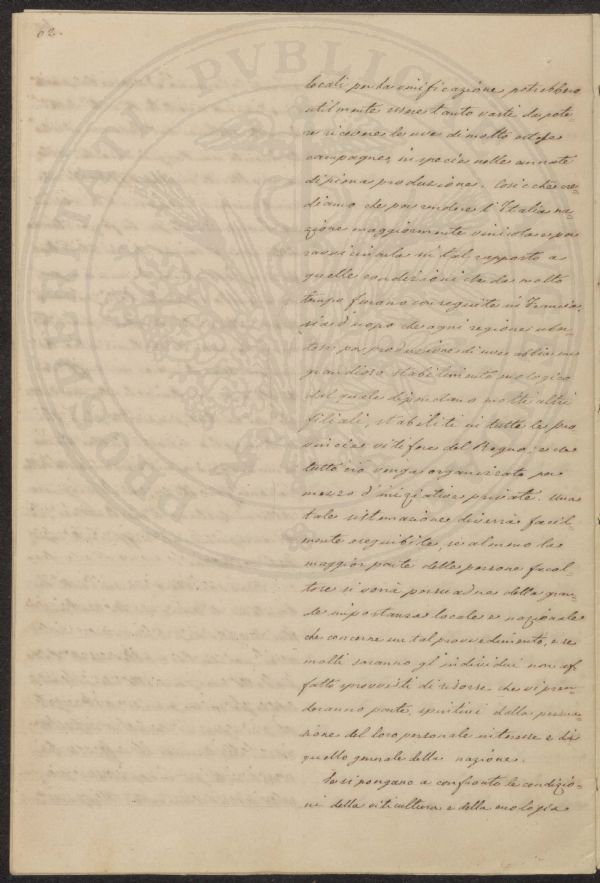 62.
locali per la vinificazione potrebbero
utilmente essere tanto vasti da pote-
re ricevere le uve di molto estese
campagne, in specie nelle annate
di piena produzione. Cosicchè cre-
diamo che per rendere l'Italia na-
zione maggiormente vinicola e per
ravvicinarla in tal rapporto a
quelle condizioni che da molto
tempo furono conseguite in Francia,
sia d'uopo che ogni regione
per produzione di uve abbia un
grandioso stabilimento enologico
dal quale dipendano molti altri
filiali, stabiliti in tutte le pro
vincie vitifere del Regno; e che
tutto ciò venga organizzato per
mezzo d'iniziative private. Una
tale sistemazione diverrà facil
mente eseguibile, se almeno la
maggior parte delle persone facol-
tose si vorrà persuadere della gran-
de importanza locale e nazionale
che concerne un tal provvedimento, e se
molti saranno gl'individui non af
fatto sprovvisti di risorse che vi pren-
deranno parte, spintivi dalla persua-
sione del loro personale interesse e di
quello generale della nazione.
Se si pongano a confronto le condizio-
ni della viticultura e della enologia
PVBLIC